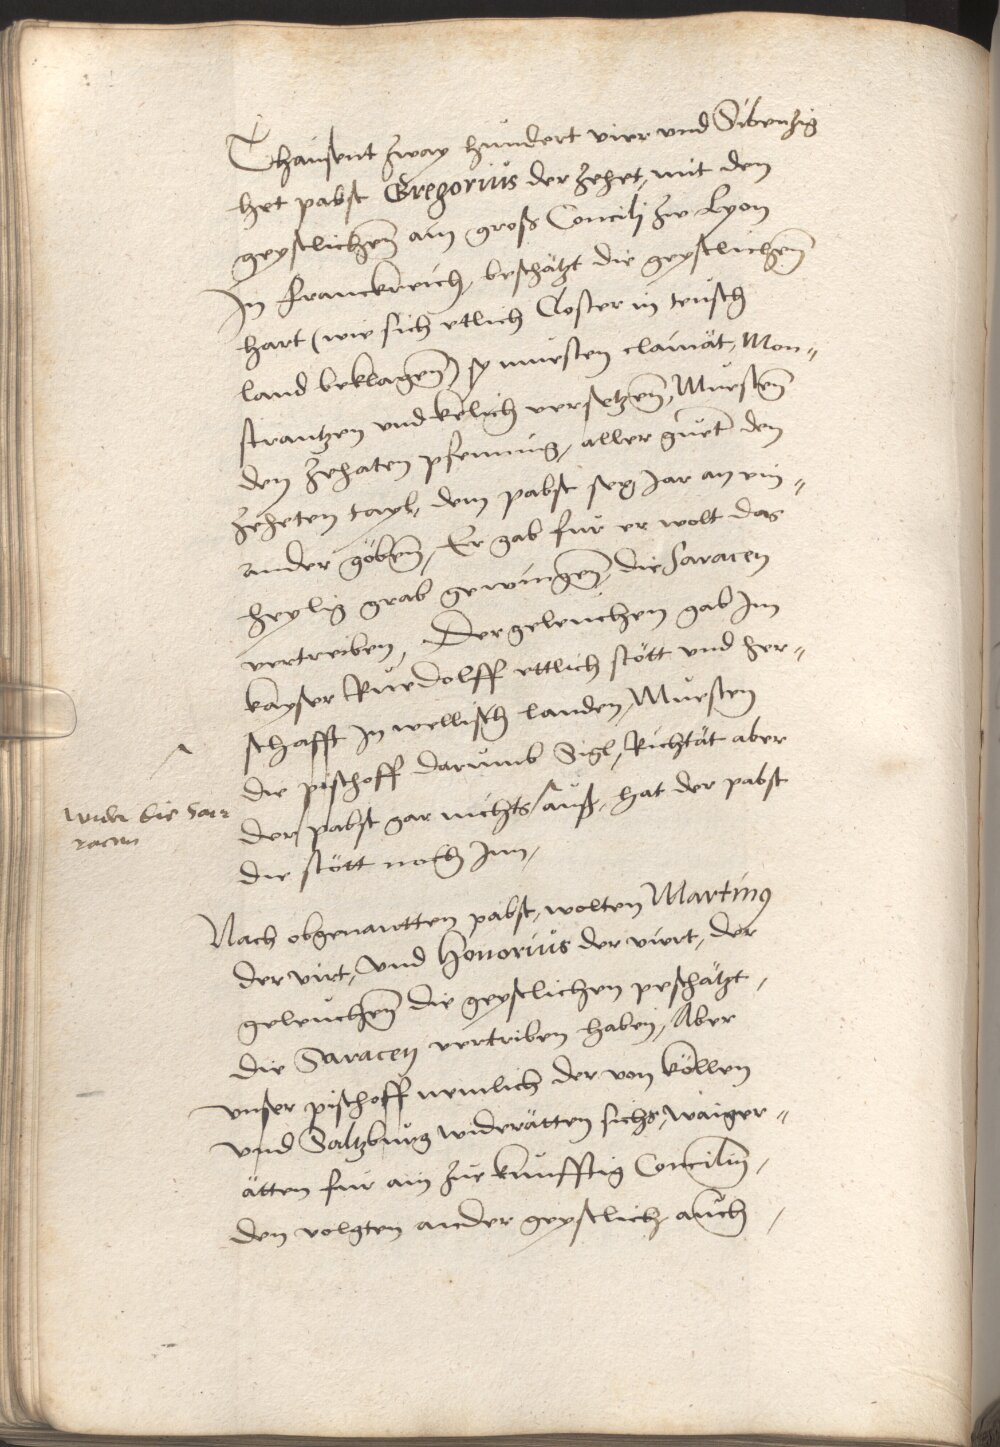 Thausent zway hundert vier und Sibenzig
het pabst Gregorius der zehet, mit den
geystlichen ain gross Concilj zw Lyon
In Franckreich, beschätzt die geystlichen
hart (wie sich etlich Closter in teusch
land beklagen) sy muesten clainät, Mon„
strantzen und kelich versetzen, Muesten
den zehaten pfenning, aller guet den
zeheten tayl, dem pabst sex Jar an ein„
ander göben, Er gab für er wolt das
heylig grab gewingen, die Saracen
vertreiben, Dergeleichen gab Im
kayser Ruedolff ettlich stött und her„
schafft In wellisch landen, Muesten
die pischoff darumb Sigl, Richtät aber
der pabst gar nichts auss, hat der pabst
wider die Sar
racen
die stött noch Inn,
Nach obgenantten pabst, wolten Martinus
der viert, und Honorius der viert, der
geleichen die geystlichen peschätzt,
die Saracen vertriben haben, Aber
unser pischoff nemlich der von köllen
und Saltzburg widerätten sichs, waiger„
ätten für ain zue künfftig Concilium,
den volgten ander geystlich auch,